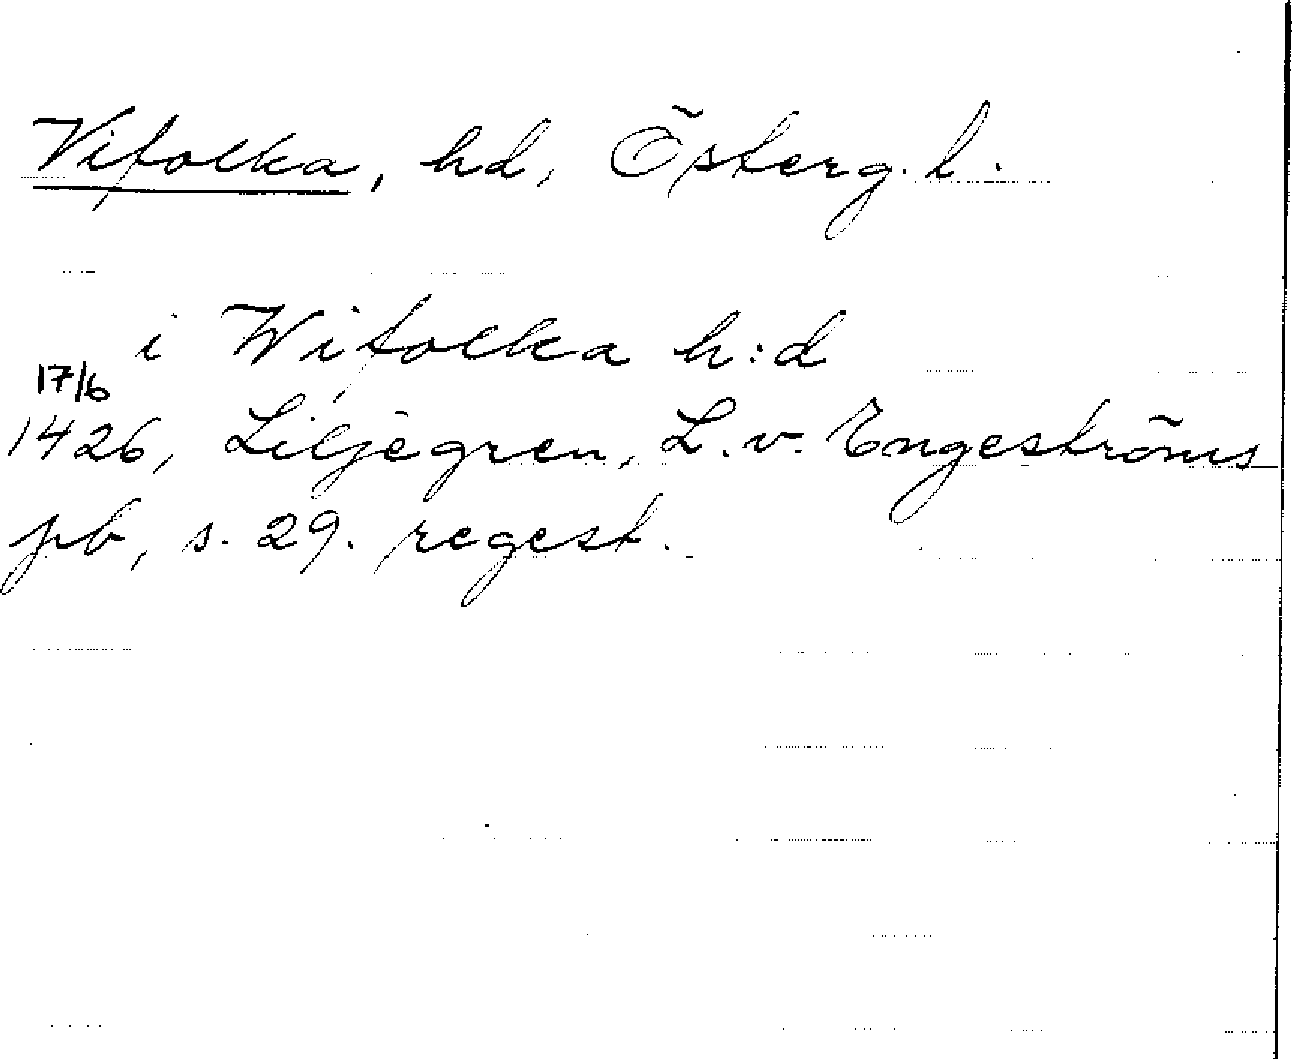 Vifolka, hd, Österg. l.
i Wifolka h:d
17/6
1426, Liljegren, L. v. Engeströms
pb, s. 29. regest.